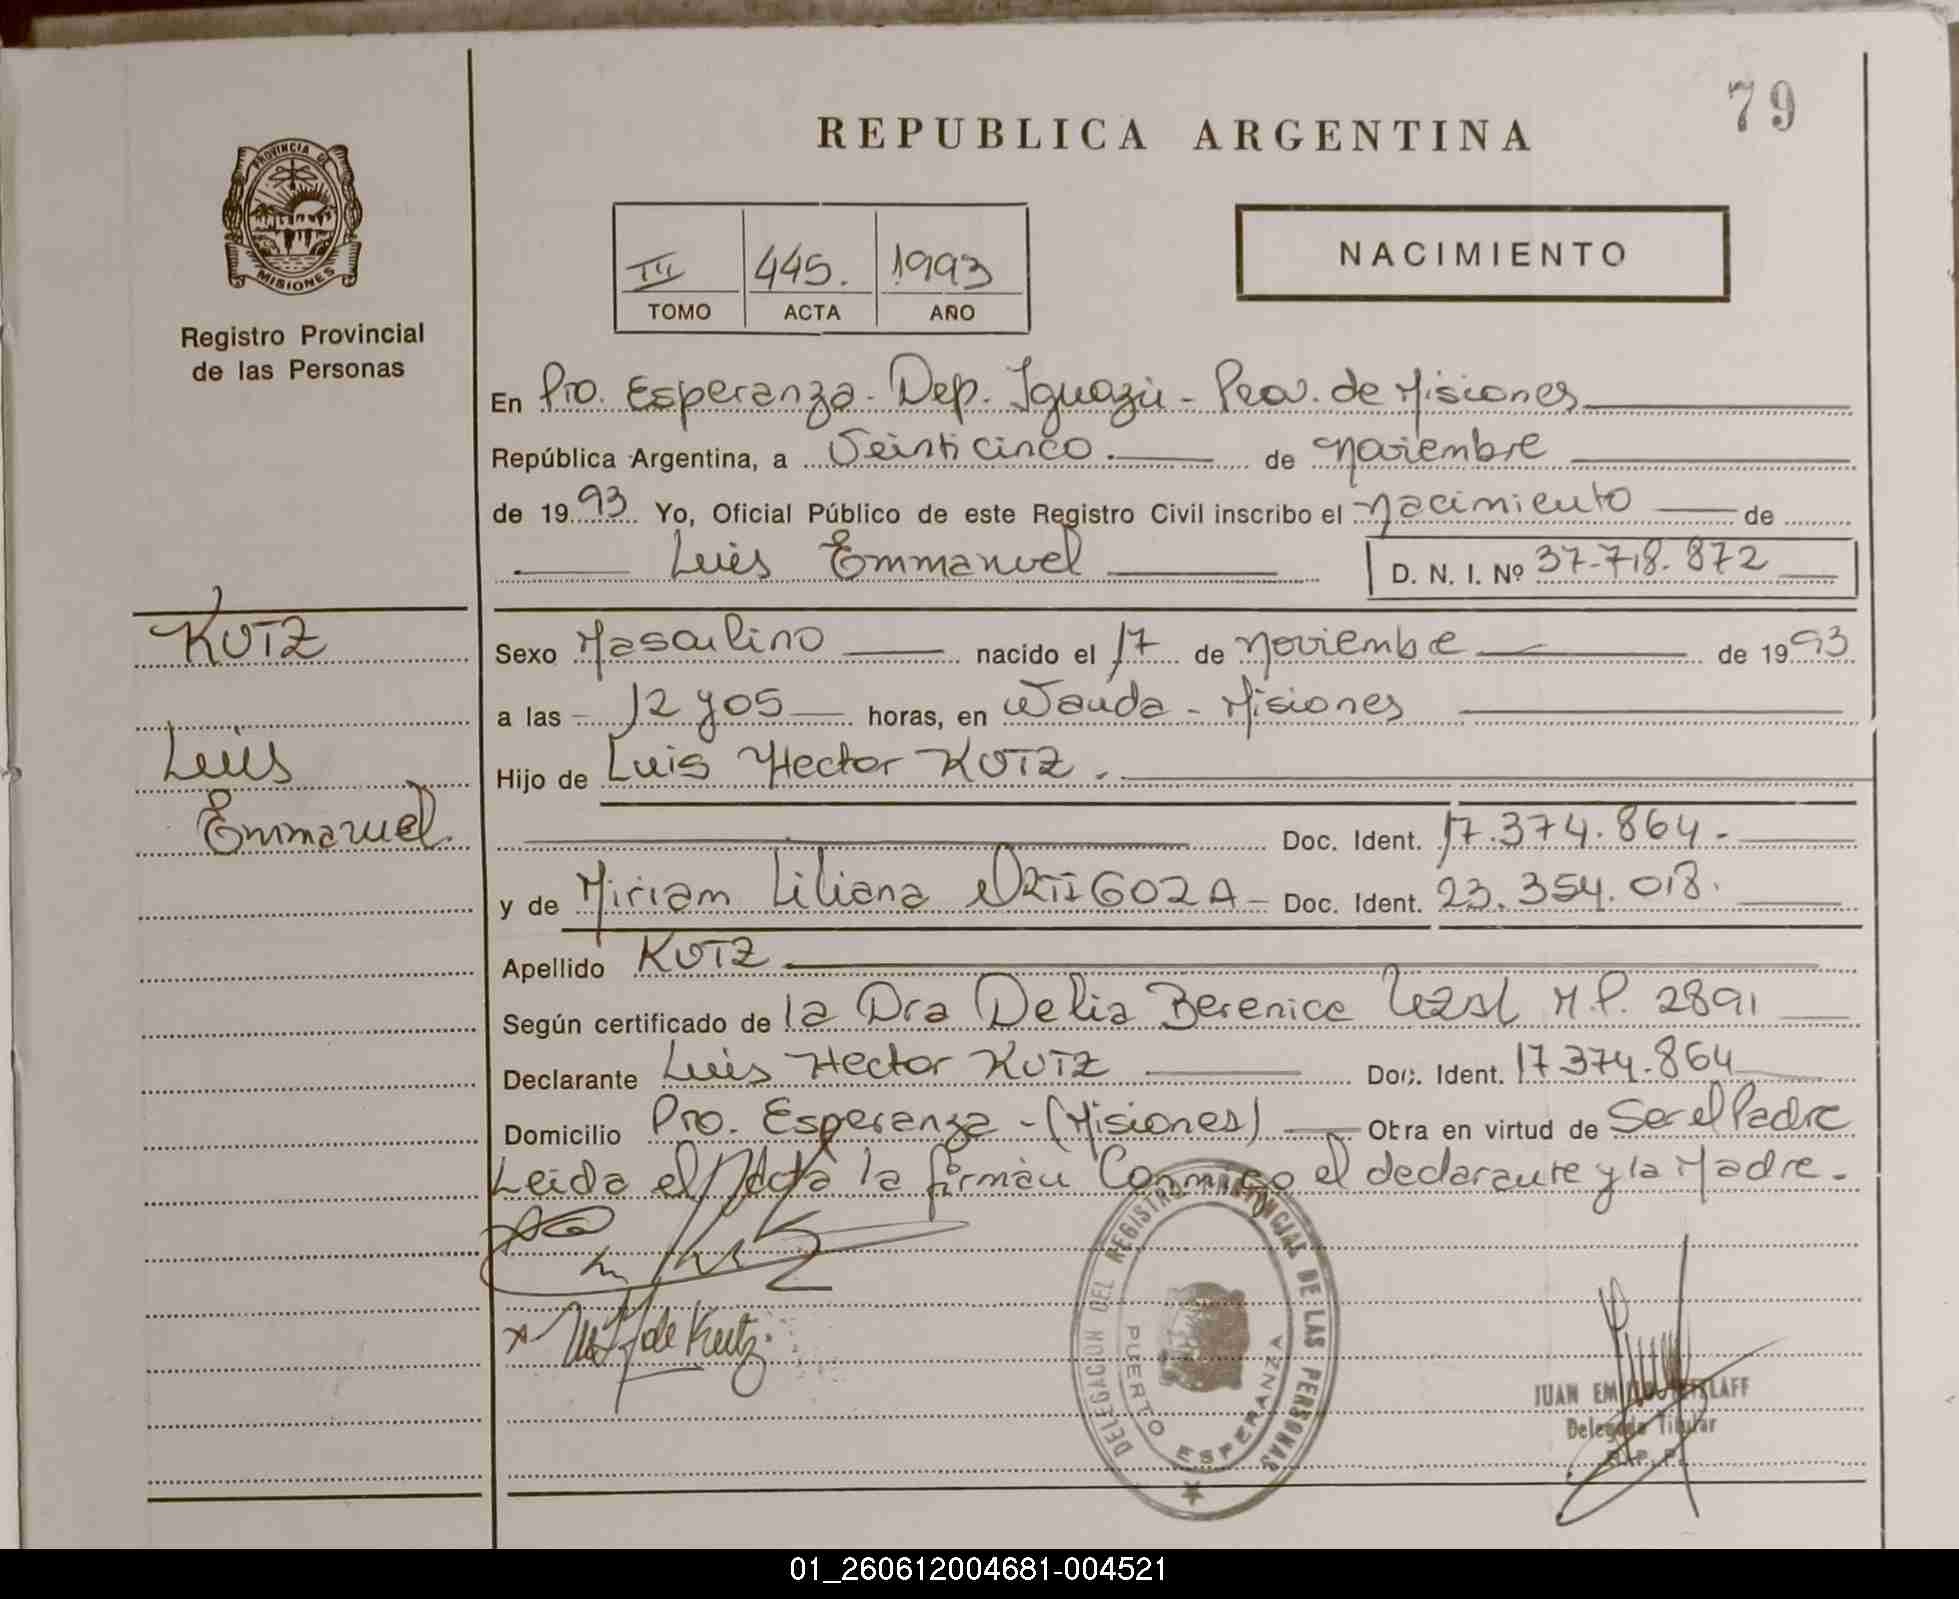 79
REPUBLICA ARGENTINA
PROVINCIA DE
MISIONES
Registro Provincial
de las Personas
III 445. 1993
TOMO ACTA AÑO
NACIMIENTO
En Pto. Esperanza - Dep. Iguazú - Prov. de Misiones
República Argentina, a Veinticinco. de noviembre
de 1993 Yo, Oficial Público de este Registro Civil inscribo el nacimiento de
Luis Emmanuel D. N. I. Nº 37.718.872
KUTZ
Luis
Emmanuel.
Sexo Masculino nacido el 17 de noviembre de 1993
a las 12 y 05 horas, en Wanda - Misiones
Hijo de Luis Hector KUTZ.
Doc. Ident. 17.374.864.-
y de Miriam Liliana Doc. Ident. 23.354.018.
Apellido KUTZ
Según certificado de la Dra Delia Berenice M.P. 2891
Declarante Luis Hector KUTZ Doc. Ident. 17.374.864
Domicilio Pto. Esperanza - (Misiones) Obra en virtud de Ser el Padre
Leida el Acta la firman Conmigo el declarante y la Madre.
de Kutz.
DELEGACION DEL REGISTRO PROVINCIAL DE LAS PERSONAS
PUERTO ESPERANZA
JUAN
Delegado Titular
R.P.P.
01_260612004681-004521